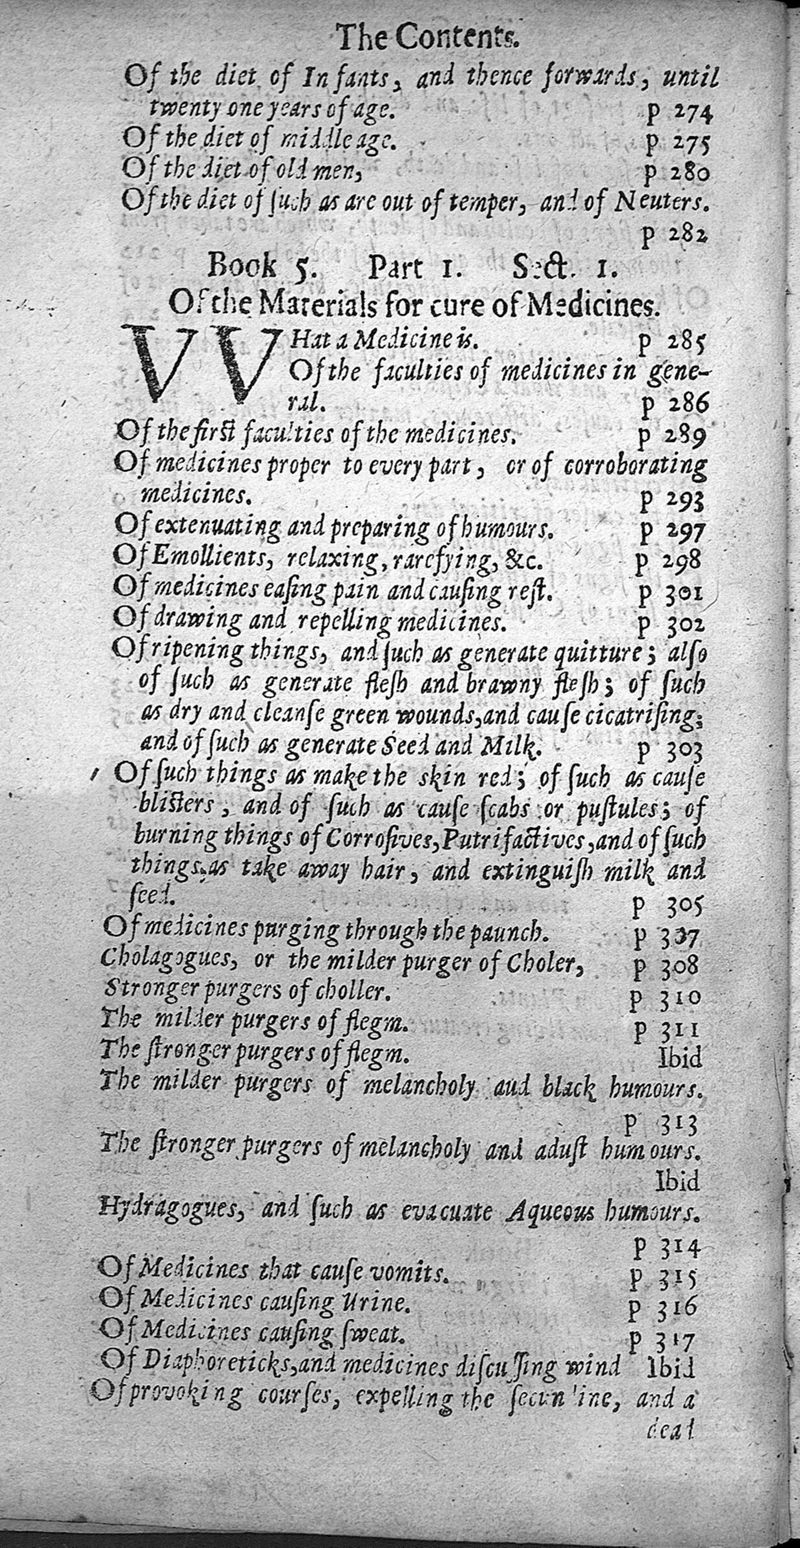 The Contents.
Of the diet of Infants, and thence forwards, until
twenty one years of age. p 274
Of the diet of middle age. p 275
Of the diet of old men, p 280
Of the diet of ſuch as are out of temper, and of Neuters.
p 282
Book 5. Part 1. Sect. 1.
Of the Materials for cure of Medicines.
VVHat a Medicine is. p 285
Of the faculties of medicines in gene-
ral. p 286
Of the firſt faculties of the medicines. p 289
Of medicines proper to every part, or of corroborating
medicines. p 293
Of extenuating and preparing of humours. p 297
Of Emollients, relaxing, rarefying, &c. p 298
Of medicines eaſing pain and cauſing reſt. p 301
Of drawing and repelling medicines. p 302
Of ripening things, and ſuch as generate quitture; alſo
of ſuch as generate fleſh and brawny fleſh; of ſuch
as dry and cleanſe green wounds, and cauſe cicatriſing;
and of ſuch as generate Seed and Milk. p 303
Of ſuch things as make the skin red; of ſuch as cauſe
bliſters, and of ſuch as cauſe ſcabs or puſtules; of
burning things of Corroſives, Putrifactives, and of ſuch
things, as take away hair, and extinguiſh milk and
ſeed. p 305
Of medicines purging through the paunch. p 307
Cholagogues, or the milder purger of Choler, p 308
Stronger purgers of choller. p 310
The milder purgers of flegm. p 311
The ſtronger purgers of flegm. Ibid
The milder purgers of melancholy aud black humours.
p 313
The ſtronger purgers of melancholy and aduſt humours.
Ibid
Hydragogues, and ſuch as evacuate Aqueous humours.
p 314
Of Medicines that cauſe vomits. p 315
Of Medicines cauſing Urine. p 316
Of Medicines cauſing ſweat. p 317
Of Diaphoreticks, and medicines diſcuſſing wind Ibid
Of provoking courſes, expelling the ſecundine, and a
dead